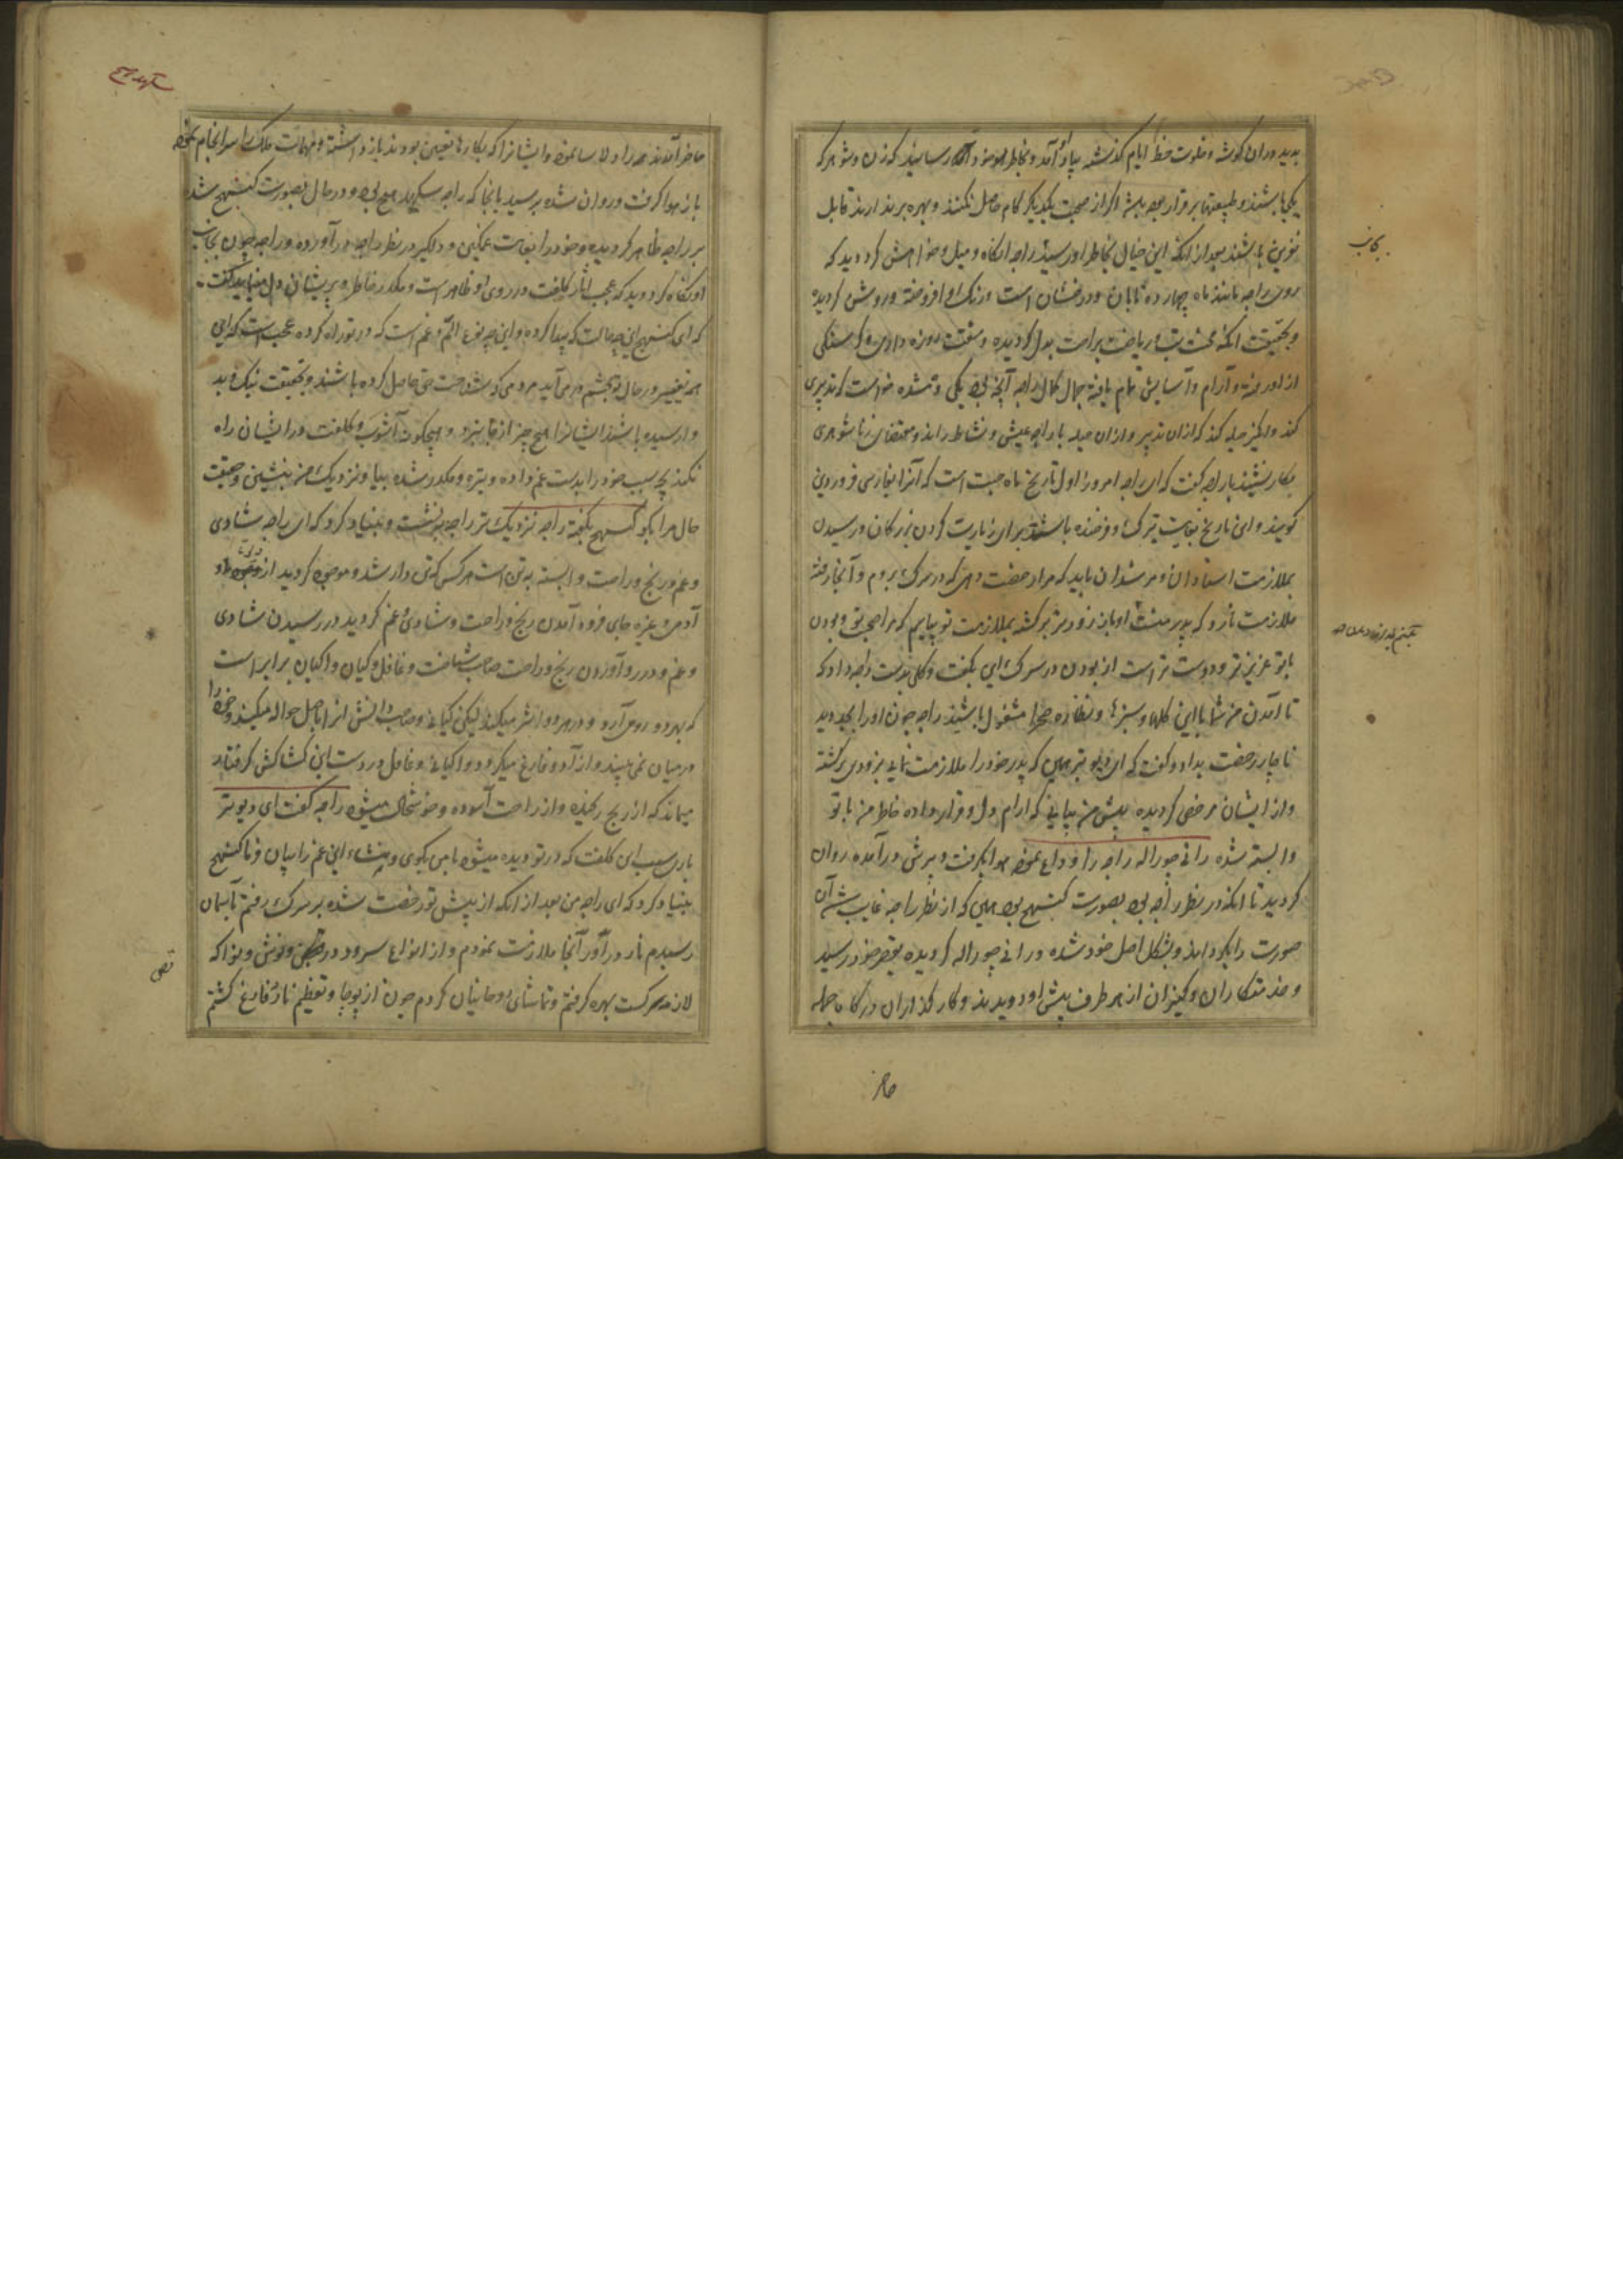 بدید در ان گوشه و خلوت حظ ایام گذشته بیاد او آمد و بخاطر که زن و شوهر که
یکجا باشند و طبیعتها برقرار بود باشد اگر از صحبت یکدیگر کام حاصل نکنند و بهره برندارند قابل
نفرین باشند بعد از انکه این خیال بخاطر او رسید راجه را نگاه و میل و خواهش کرد دید که
روی راجه مانند ماه چهارده تابان و درخشان است و رنگ او افروخته و روشن گردیده
و بحقیقت انکه محنت تپ و ریاضت براحت بدل گردیده و مشقت روزه داری و گرسنگی
از او رفته و آرام و آسایش تمام یافته جمال کمال راجه آنچه بود یکی و ده شده خواست که تدبیری
کند و انگیز حیله کند که ازان تدبیر و ازان حیله با راجه عیش و نشاط راند و بمقتضای زناشوهری
بکار بنشیند با راجه گفت که ای راجه امروز اول تاریخ ماه چیت است که آنرا بفارسی فروردین
گویند و این تاریخ بغایت متبرک و فرخنده باشد برای زیارت کردن بزرگان و رسیدن
بملازمت استادان و مرشدان باید که مرا رخصت دهی که در سرگ بروم و آنجا رفته
ملازمت نارد که پدر منست او باز زودتر برگشته بملازمت تو بیایم که مرا صحبت تو و بودن
با تو عزیزتر و دوست تر است از بودن در سرگ این بگفت و گلی بدست راجه داد که
تا آمدن من شما با این گلها و سبزها و نظاره صحرا مشغول باشید راجه چون او را بجد دید
ناچار رخصت بداد و گفت که ای دیوپتر همین که پدر خود را ملازمت نمایی بزودی برگشته
و از ایشان مرخص گردیده پیش من بیایی که آرام دل و قرار داده خاطر من با تو
وابسته شده رانی چوراله راجه را وداع نموده هوا بگرفت و برش درآمده روان
گردید تا انکه در نظر راجه بود بصورت کنبهج بود همین که از نظر راجه غایب شد آن
صورت را بگرداند و بشکل اصل خود شده رانی چوراله گردیده بقصر خود رسید
و خدمتکاران و کنیزان از هر طرف پیش او دویدند و کارگذاران درگاه جمله
حاضر
حاضر آمدند همه را دلاسا نموده و ایشانرا که بکارها تعیین بودند باز داشته و مهمات ملک را سرانجام نموده
باز هوا گرفت و روان شده برسید بانجا که راجه سکهدهج بود و در حال بصورت کنبهج شد
بر راجه ظاهر گردیده و خود را بغایت غمگین و دلگیر در نظر راجه درآورده و راجه چون بجانب
او نگاه کرد دید که عجب آثار کلفت در روی او ظاهر است و مکدر خاطر و پریشان دل گفت
که ای کنبهج این چه حالت که پیدا کرده و این چه نوع الم و غم است که در تو راه کرده عجب است که این
همه تغییر در حال تو بچشم در می آید مردمی که شناخت حق حاصل کرده باشند و بحقیقت نیک و بد
وارسیده باشند ایشانرا هیچ چیز از جا نبرد و هیچگونه آشوب و کلفت در ایشان راه
نکند بچه سبب خود را بدست غم داده و تیره و مکدر شده بیا و نزدیک من بنشین و حقیقت
حال مرا بگو کنبهج بگفته راجه نزدیک تر راجه بنشست و بنیاد کرد که ای راجه شادی
و غم و رنج و راحت وابسته به تن است هر کس که تن دار شد و موجود گردید از
آدمی و غیره جای فرود آمدن رنج و راحت و شادی و غم گردید در رسیدن شادی
و غم و در رو آوردن رنج و راحت صاحب شناخت و غافل و گیان و اگیان برابر است
که بهر دو روی آرد و در هر دو اثر میکند لیکن گیانی و صاحب دانش انرا باصل حواله میکند و خود را
در میان نمی بیند و از آن دو فارغ میگردد و اگیانی و غافل در دست این کشاکش گرفتار
میماند که از رنج رنجیده و از راحت آسوده و خوشحال میشود راجه گفت ای دیوپتر
باری سبب این کلفت که در تو دیده میشود با من بگوی و منشاء این غم را بیان فرما کنبهج
بنیاد کرد که ای راجه من بعد از انکه از پیش تو رخصت شده بر سرگ رفتم تا بآسمان
رسیدم نارد را در آنجا ملازمت نمودم و از انواع سرود و رقص و نوش و نوا که
لازمه سرگ است بهره گرفتم و تماشای روحانیان کردم چون از پوجا و تعظیم نارد فارغ گشتم